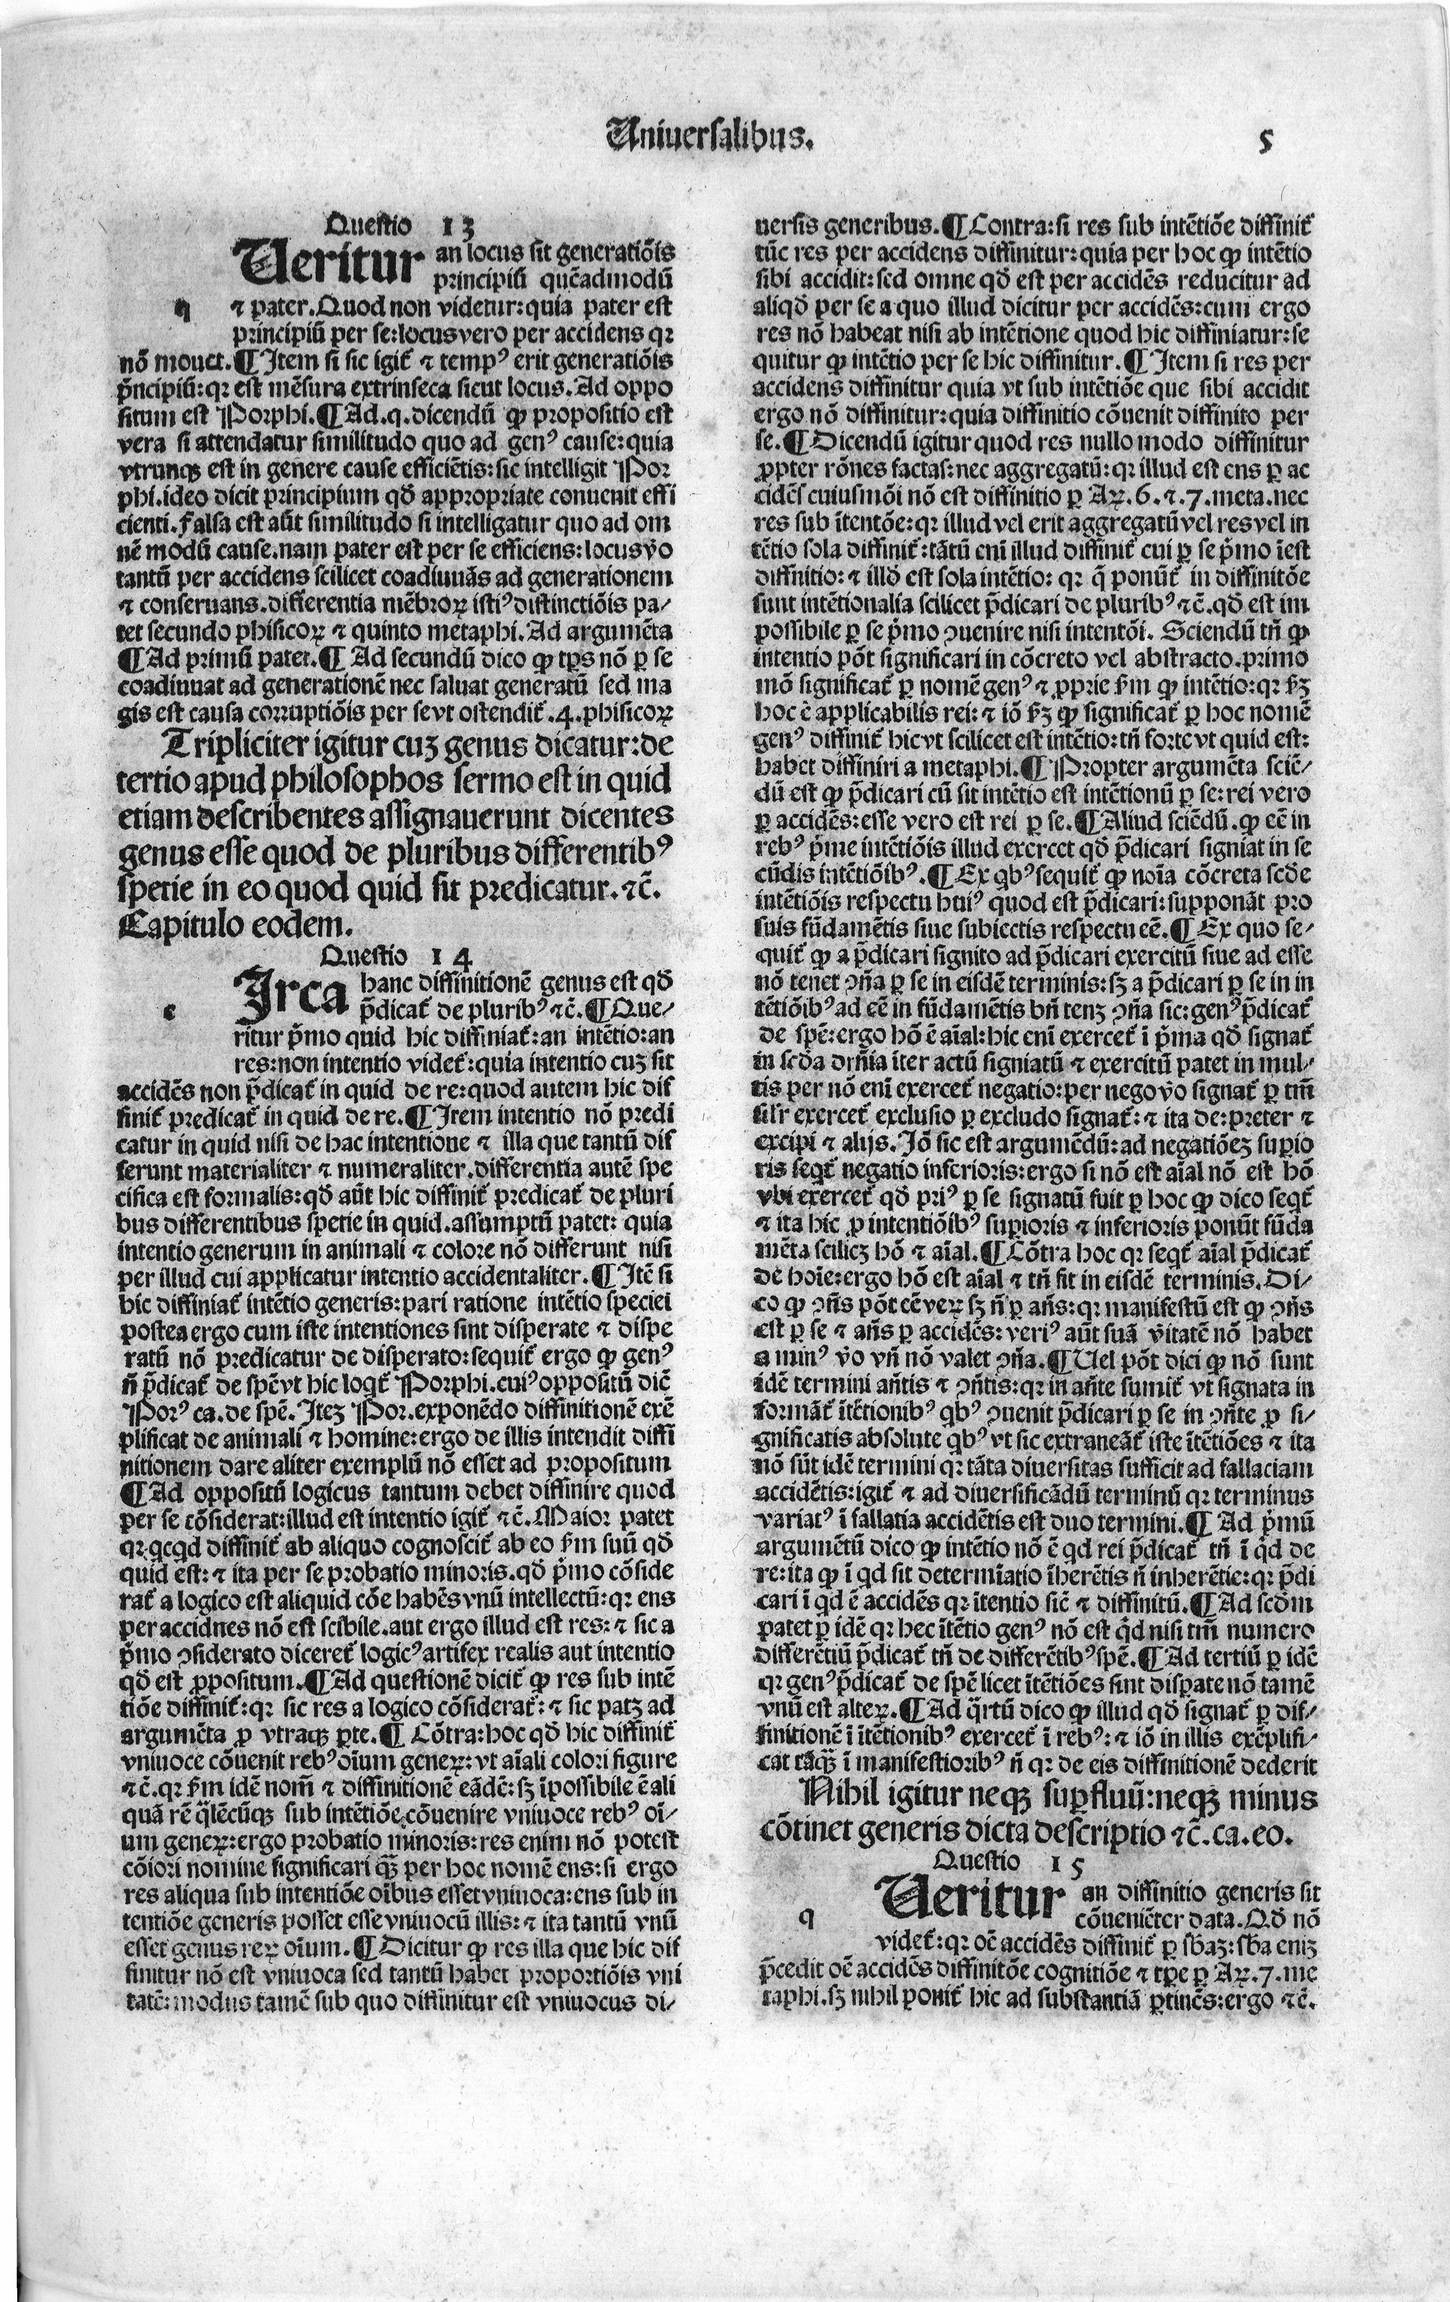 Uniuersalibus.
5
Questio 13
q
Ueritur an locus sit generatiõis
principiũ quẽadmodũ
⁊ pater. Quod non videtur: quia pater est
principiũ per se: locus vero per accidens qꝛ
nõ mouet. ¶ Item si sic igit̃ ⁊ temp⁹ erit generatiõis
p̃ncipiũ: qꝛ est mẽsura extrinseca sicut locus. Ad oppo
situm est Porphi. ¶ Ad .q. dicendũ ꝙ propositio est
vera si attendatur similitudo quo ad gen⁹ cause: quia
vtrunqꝫ est in genere cause efficiẽtis: sic intelligit Por
phi. ideo dicit principium qđ appropriate conuenit effi
cienti. falsa est aũt similitudo si intelligatur quo ad om
nẽ modũ cause. nam pater est per se efficiens: locus v̾o
tantũ per accidens scilicet coadiuuãs ad generationem
⁊ conseruans. differentia mẽbroꝝ isti⁹ distinctiõis pa⸗
tet secundo phisicoꝝ ⁊ quinto metaphi. Ad argumẽta
¶ Ad primũ patet. ¶ Ad secundũ dico ꝙ tp̃s nõ ꝑ se
coadiuuat ad generationẽ nec saluat generatũ sed ma
gis est causa corruptiõis per se vt ostendit̃ .4. phisicoꝝ
Tripliciter igitur cuꝫ genus dicatur: de
tertio apud philosophos sermo est in quid
etiam describentes assignauerunt dicentes
genus esse quod de pluribus differentib⁹
specie in eo quod quid sit predicatur. ⁊c̃.
Capitulo eodem.
Questio 14
c
Irca hanc diffinitionẽ genus est qđ
p̃dicat̃ de plurib⁹ ⁊c̃. ¶ Que⸗
ritur p̃mo quid hic diffiniat̃: an intẽtio: an
res: non intentio videt̃: quia intentio cuꝫ sit
accidẽs non p̃dicat̃ in quid de re: quod autem hic dif
finit̃ predicat̃ in quid de re. ¶ Item intentio nõ predi
catur in quid nisi de hac intentione ⁊ illa que tantũ dif
ferunt materialiter ⁊ numeraliter. differentia autẽ spe
cifica est formalis: qđ aũt hic diffinit̃ predicat̃ de pluri
bus differentibus specie in quid. assumptũ patet: quia
intentio generum in animali ⁊ colore nõ differunt nisi
per illud cui applicatur intentio accidentaliter. ¶ Itẽ si
hic diffiniat̃ intẽtio generis: pari ratione intẽtio speciei
postea ergo cum iste intentiones sint disperate ⁊ dispe
ratũ nõ predicatur de disperato: sequit̃ ergo ꝙ gen⁹
ñ p̃dicat̃ de spẽ vt hic loqt̃ Porphi. cui⁹ oppositũ dic̃
Por⁹ ca. de spẽ. Iteꝫ Por. exponẽdo diffinitionẽ exẽ
plificat de animali ⁊ homine: ergo de illis intendit diffi
nitionem dare aliter exemplũ nõ esset ad propositum
¶ Ad oppositũ logicus tantum debet diffinire quod
per se cõsiderat: illud est intentio igit̃ ⁊c̃. Maior patet
qꝛ qcqđ diffinit̃ ab aliquo cognoscit̃ ab eo ẜm suũ qđ
quid est: ⁊ ita per se probatio minoris. qđ p̃mo cõside
rat̃ a logico est aliquid cõe habẽs vnũ intellectũ: qꝛ ens
per accidnes nõ est scibile. aut ergo illud est res: ⁊ sic a
p̃mo ꝯsiderato diceret̃ logic⁹ artifex realis aut intentio
qđ est ꝓpositum. ¶ Ad questionẽ dicit̃ ꝙ res sub intẽ
tiõe diffinit̃: qꝛ sic res a logico cõsiderat̃: ⁊ sic patꝫ ad
argumẽta ꝓ vtraqꝫ ꝑte. ¶ Cõtra: hoc qđ hic diffinit̃
vniuoce cõuenit reb⁹ oĩum geneꝝ: vt aĩali colori figure
⁊c̃. qꝛ ẜm idẽ nom̃ ⁊ diffinitionẽ eãdẽ: sꝫ ĩpossibile ẽ ali
quã rẽ q̃lẽcũqꝫ sub intẽtiõe cõuenire vniuoce reb⁹ oĩ⸗
um geneꝝ: ergo probatio minoris: res enim nõ potest
cõiori nomine significari q̃ꝫ per hoc nomẽ ens: si ergo
res aliqua sub intentiõe oĩbus esset vniuoca: ens sub in
tentiõe generis posset esse vniuocũ illis: ⁊ ita tantũ vnũ
esset genus reꝝ oĩum. ¶ Dicitur ꝙ res illa que hic dif
finitur nõ est vniuoca sed tantũ habet proportiõis vni
tatẽ: modus tamẽ sub quo diffinitur est vniuocus di⸗
uersis generibus. ¶ Contra: si res sub intẽtiõe diffinit̃
tũc res per accidens diffinitur: quia per hoc ꝙ intẽtio
sibi accidit: sed omne qđ est per accidẽs reducitur ad
aliqđ per se a quo illud dicitur per accidẽs: cum ergo
res nõ habeat nisi ab intẽtione quod hic diffiniatur: se
quitur ꝙ intẽtio per se hic diffinitur. ¶ Item si res per
accidens diffinitur quia vt sub intẽtiõe que sibi accidit
ergo nõ diffinitur: quia diffinitio cõuenit diffinito per
se. ¶ Dicendũ igitur quod res nullo modo diffinitur
ꝓpter rõnes factas: nec aggregatũ: qꝛ illud est ens ꝑ ac
cidẽs cuiusmõi nõ est diffinitio ꝑ Aꝝ. 6. ⁊ .7. meta. nec
res sub ĩtentõe: qꝛ illud vel erit aggregatũ vel res vel in
tẽtio sola diffinit̃: tãtũ enĩ illud diffinit̃ cui ꝑ se p̃mo ĩest
diffinitio: ⁊ illđ est sola intẽtio: qꝛ q̃ ponũt̃ in diffinitõe
sunt intẽtionalia scilicet p̃dicari de plurib⁹ ⁊c̃. qđ est im
possibile ꝑ se p̃mo ꝯuenire nisi intentõi. Sciendũ tñ ꝙ
intentio põt significari in cõcreto vel abstracto. primo
mõ significat̃ ꝑ nomẽ gen⁹ ⁊ ꝓprie ẜm ꝙ intẽtio: qꝛ ẜꝫ
hoc ẽ applicabilis rei: ⁊ iõ ẜꝫ ꝙ significat̃ ꝑ hoc nomẽ
gen⁹ diffinit̃ hic vt scilicet est intẽtio: tñ forte vt quid est:
habet diffiniri a metaphi. ¶ Propter argumẽta sciẽ⸗
dũ est ꝙ p̃dicari cũ sit intẽtio est intẽtionũ ꝑ se: rei vero
ꝑ accidẽs: esse vero est rei ꝑ se. ¶ Aliud sciẽdũ. ꝙ eẽ in
reb⁹ p̃me intẽtiõis illud exercet qđ p̃dicari signiat in se
cũdis intẽtiõib⁹. ¶ Ex qb⁹ sequit̃ ꝙ noĩa cõcreta scđe
intẽtiõis respectu hui⁹ quod est p̃dicari: supponãt pro
suis fũdamẽtis siue subiectis respectu eẽ. ¶ Ex quo se⸗
quit̃ ꝙ a p̃dicari signito ad p̃dicari exercitũ siue ad esse
nõ tenet ꝯña ꝑ se in eisdẽ terminis: sꝫ a p̃dicari ꝑ se in in
tẽtiõib⁹ ad eẽ in fũdamẽtis bñ tenꝫ ꝯña sic: gen⁹ p̃dicat̃
de spẽ: ergo hõ ẽ aĩal: hic enĩ exercet̃ ĩ p̃ma qđ signat̃
in scđa drñia ĩter actũ signiatũ ⁊ exercitũ patet in mul⸗
tis per nõ enĩ exercet̃ negatio: per nego v̾o signat̃ ꝑ tm̃
sil'r exercet̃ exclusio ꝑ excludo signat̃: ⁊ ita de: preter ⁊
excipi ⁊ alijs. Iõ sic est argumẽdũ: ad negatiõeꝫ supio
ris seqt̃ negatio inferioris: ergo si nõ est aĩal nõ est hõ
vbi exercet̃ qđ pri⁹ ꝑ se signatũ fuit ꝑ hoc ꝙ dico seqt̃
⁊ ita hic ꝓ intentiõib⁹ suꝑioris ⁊ inferioris ponũt fũda
mẽta scilicꝫ hõ ⁊ aĩal. ¶ Cõtra hoc qꝛ seqt̃ aĩal p̃dicat̃
de hoĩe: ergo hõ est aĩal ⁊ tñ fit in eisdẽ terminis. Di⸗
co ꝙ ꝯñs põt eẽ veꝝ sꝫ ñ ꝑ añs: qꝛ manifestũ est ꝙ ꝯñs
est ꝑ se ⁊ añs ꝑ accidẽs: veri⁹ aũt suã v̾itatẽ nõ habet
a min⁹ v̾o vñ nõ valet ꝯña. ¶ Uel põt dici ꝙ nõ sunt
idẽ termini añtis ⁊ ꝯñtis: qꝛ in añte sumit̃ vt signata in
formãt̃ ĩtẽtionib⁹ qb⁹ ꝯuenit p̃dicari ꝑ se in ꝯñte ꝓ si⸗
gnificatis absolute qb⁹ vt sic extraneãt̃ iste ĩtẽtiões ⁊ ita
nõ sũt idẽ termini qꝛ tãta diuersitas sufficit ad fallaciam
accidẽtis: igit̃ ⁊ ad diuersificãdũ terminũ qꝛ terminus
variat⁹ ĩ fallatia accidẽtis est duo termini. ¶ Ad p̃mũ
argumẽtũ dico ꝙ intẽtio nõ ẽ qd rei p̃dicat̃ tñ ĩ qd de
re: ita ꝙ ĩ qd sit determĩatio ĩherẽtis ñ inherẽtie: qꝛ p̃di
cari ĩ qd ẽ accidẽs qꝛ ĩtentio sic̃ ⁊ diffinitũ. ¶ Ad scđm
patet ꝑ idẽ qꝛ hec ĩtẽtio gen⁹ nõ est q̃d nisi tm̃ numero
differẽtiũ p̃dicat̃ tñ de differẽtib⁹ spẽ. ¶ Ad tertiũ ꝑ idẽ
qꝛ gen⁹ p̃dicat̃ de spẽ licet ĩtẽtiões sint disꝑate nõ tamẽ
vnũ est alteꝝ. ¶ Ad q̃rtũ dico ꝙ illud qđ signat̃ ꝑ dif⸗
finitionẽ ĩ ĩtẽtionib⁹ exercet̃ ĩ reb⁹: ⁊ iõ in illis exẽplifi⸗
cat tãqꝫ̃ ĩ manifestiorib⁹ ñ qꝛ de eis diffinitionẽ dederit
Nihil igitur neqꝫ suꝑfluũ: neqꝫ minus
cõtinet generis dicta descriptio ⁊c̃. ca. eo.
Questio 15
q
Ueritur an diffinitio generis sit
cõueniẽter data. Qđ nõ
videt̃: qꝛ oẽ accidẽs diffinit̃ ꝑ sb̃aꝫ: sb̃a eniꝫ
p̃cedit oẽ accidẽs diffinitõe cognitiõe ⁊ tp̃e ꝑ Aꝝ. 7. me
taphi. sꝫ nihil ponit̃ hic ad substantiã ꝑtinẽs: ergo ⁊c̃.